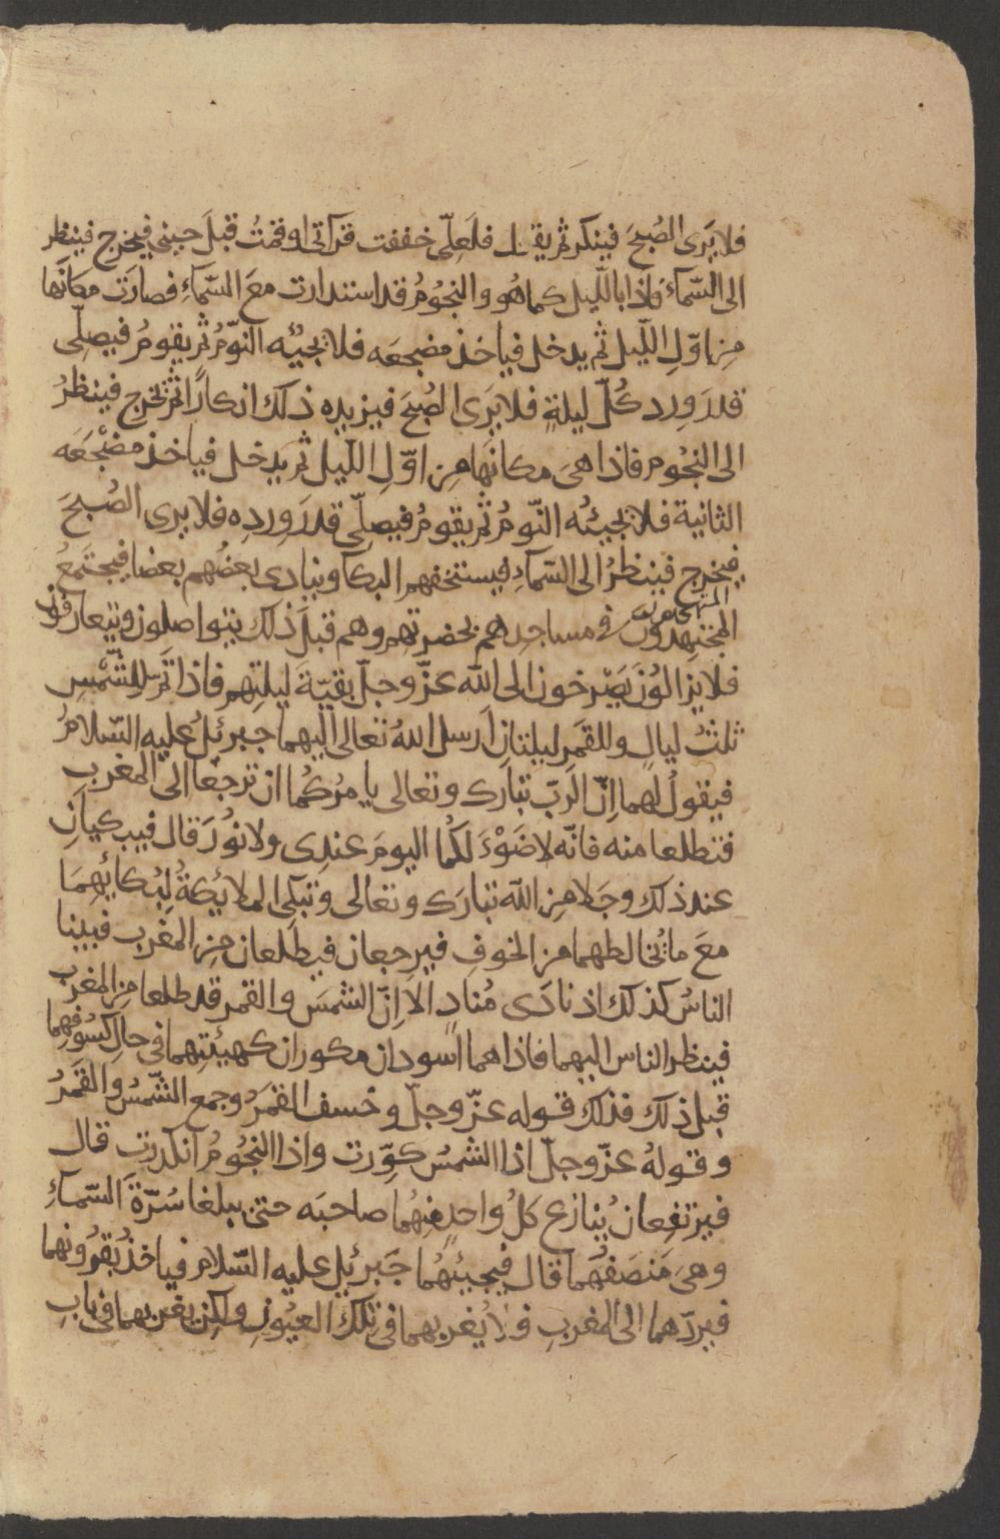 فلا يَرى الصُبحَ فينكر ثم يقول فلَعلّى خففت قرآتى او قمتُ قبلَ حينى فيخرج فينظر
الى السّماءِ فاذا باللّيل كما هُو والنجُومُ قد استدارت معَ السّماءِ فصارَت مكانَها
مِن اوّلِ اللّيل ثم يدخل فياخذ مضجعَه فلا يجيئه النّومُ ثم يقومُ فيصلّى
قدرَ وِرد كُلّ ليلةٍ فلا يَرَى الصُبحَ فيزيده ذلك انكارًا ثم يخرج فينظرُ
الى النجُوم فاذا هىَ مكانَها مِن اوّلِ اللّيل ثم يَدخل فياخذ مضْجَعَه
الثانية فلا يجيئُه النّومُ ثم يقومُ فيصلّى قدرَ وِردِه فلا يرى الصُبحَ
فيخرج فينظرُ الى السّماءِ فيستخفهم البكآ وينادى بعضُهم بعضا فيجتمعُ
المتهجدون
المجتهِدُونَ فى مساجِدِهم بحضرتهم وهم قبلَ ذلك يتواصلون ويتعارفون
فلا يزالوُنَ يَصْرخون الى اللّه عزّ وجلّ بقيّةَ ليلتِهم فاذا تَم للشّمْسِ
ثلثُ ليالٍ وللقَمرِ ليلتانِ اَرسل اللهُ تعالى اليهما جبرئلُ عليه السّلامُ
فيقولُ لهما اِنّ الرّبّ تبارك وتعالى يامُركُما ان ترجعَا الى المغرب
فتطلعا منه فانّه لا ضَوْءَ لكُما اليومَ عندِى ولا نوُرَ قال فيبكيانِ
عند ذلك وجَلا مِن اللّه تبارَك وتعالى وتبكى الملائكةُ لِبُكائهِمَا
معَ ما يُخالطهما من الخوفِ فيرجعان فيطلعان مِن المغرب فبينا
الناسُ كذلك اذ نادَى مُنادٍ الاَ اِنّ الشمسَ والقمر قد طلعا مِن المغربِ
فينظر الناس اليهما فاذا هما اسودان مكوران كهيئتِهما فى حالِ كسُوفِهما
قبل ذلك فذلك قوله عزّ وجلّ وخسف القمَرُ وجمع الشّمسُ والقمَرُ
وقولهُ عزّ وجلّ اذا الشمسُ كوِّرت واذا النجُومُ انكدرت قال
فيرتفِعان يُنازع كلُ واحدٍ مِنهُما صاحبَه حتى يبلغا سُرّةَ السّماءِ
وهىَ مَنصَفُهما قال فيجيئهُما جَبرئيل عليه السّلام فياخذ بقرُونهما
فيردّهما الى المغربِ فلا يُغربهما فى تلك العيُونِ ولكن يغربهما فى بابِ